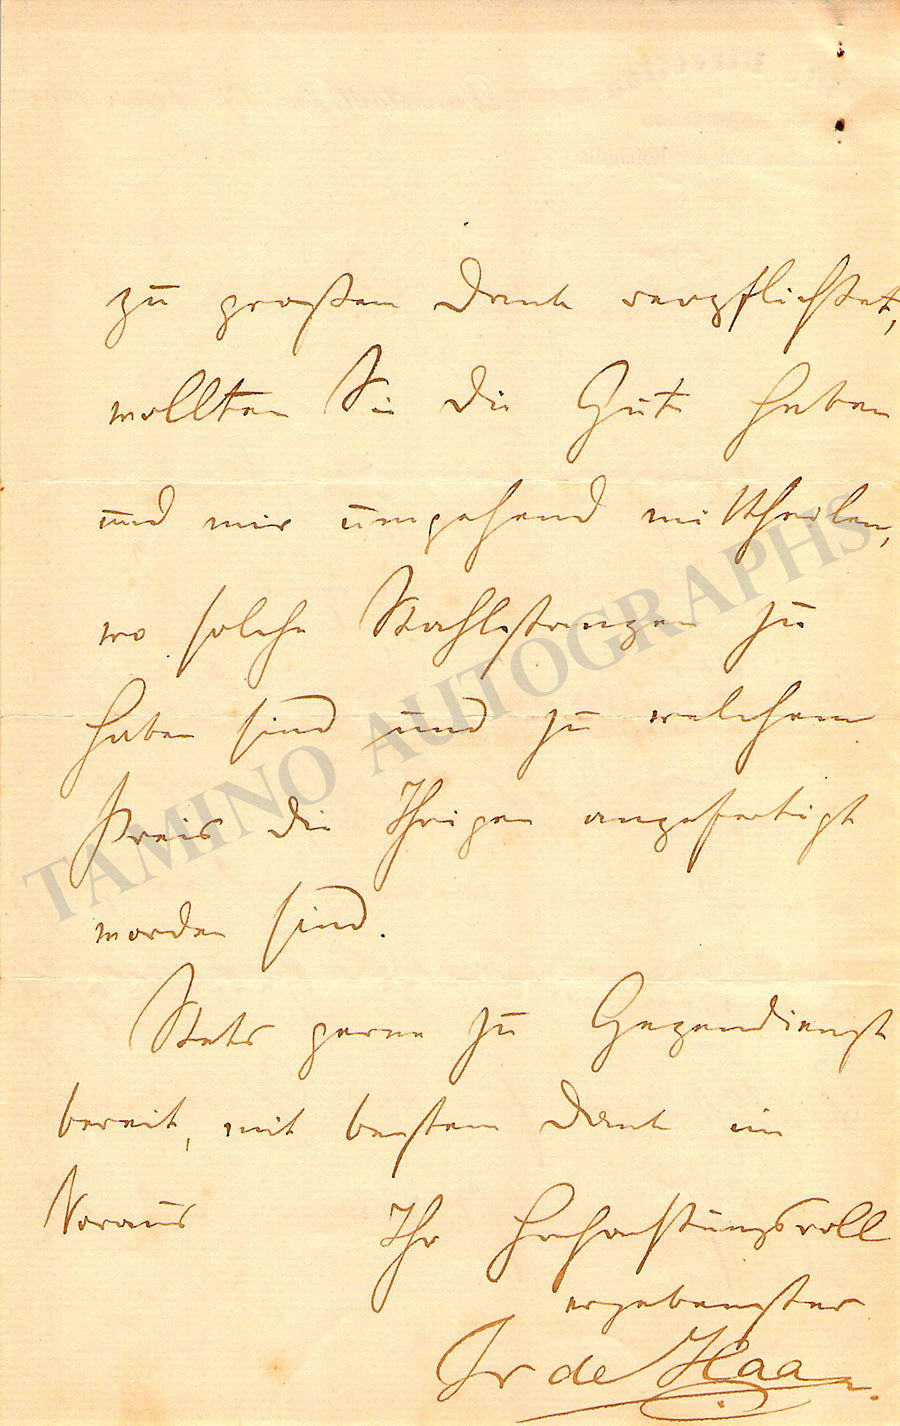 zu großem Dank verpflichtet,
wollten Sie die Güte haben
und mir umgehend mittheilen,
wo solche Stahlstangen zu
haben sind und zu welchem
Preis die Ihrigen angefertigt
worden sind.
Stets gerne zu Gegendienst
bereit, mit bestem Dank im
Voraus Ihr Hochachtungsvoll
ergebenster
de Haan.
TAMINO AUTOGRAPHS